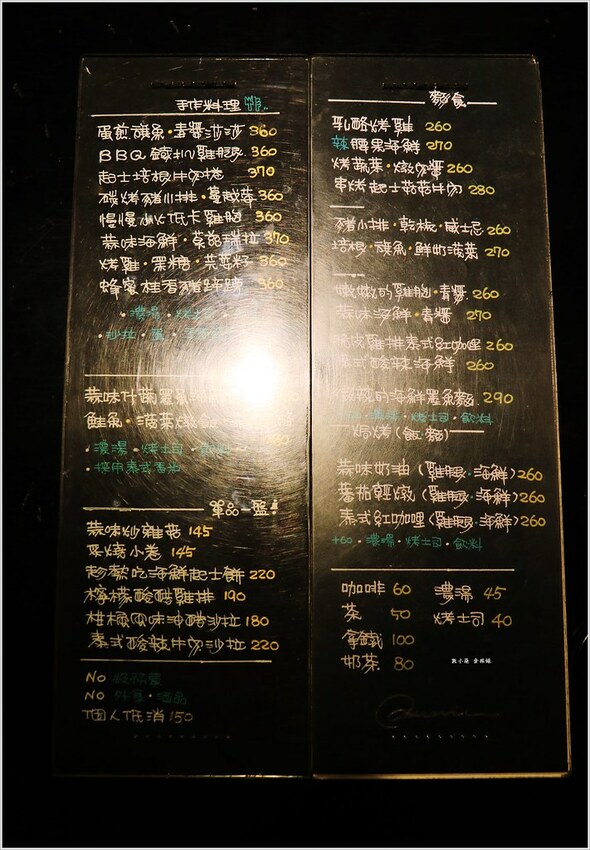 手作料理
蛋煎旗魚·青醬莎莎 360
BBQ 雞腿 360
起士培根牛肉捲 370
碳烤豬小排·蔓越莓 360
慢慢火低卡雞胸 360
蒜味海鮮·瑞拉 370
烤雞·黑糖·芥茉籽 360
蜂蜜桂香豬 360
·濃湯·烤士司
·沙拉·蛋
蒜味什菌墨魚
鮭魚·菠菜燉飯
·濃湯·烤士司·飲料
·採用泰式香米
單品一盤
蒜味炒雜菇 145
小卷 145
趁熱吃海鮮起士餅 220
檸檬酸醋雞排 190
柑橘風味油醋沙拉 180
泰式酸辣牛肉沙拉 220
No 服務費
No 外食·酒品
個人低消 150
麵食
乳酪烤雞 260
辣腰果海鮮 270
烤蔬菜·燉肉醬 260
串烤起士菇菇牛肉 280
豬小排·乾椒·威士忌 260
培根·旗魚·鮮奶菠菜 270
嫩嫩的雞胸·青醬 260
蒜味海鮮·青醬 270
脆皮雞排泰式紅咖哩 260
泰式酸辣海鮮 260
辣的海鮮墨魚麵 290
濃湯·烤士司·飲料
焗烤(飯/麵)
蒜味奶油(雞腿·海鮮) 260
蕃茄輕燉(雞腿·海鮮) 260
泰式紅咖哩(雞腿·海鮮) 260
+60·濃湯·烤士司·飲料
咖啡 60 濃湯 45
茶 50 烤士司 40
拿鐵 100
奶茶 80